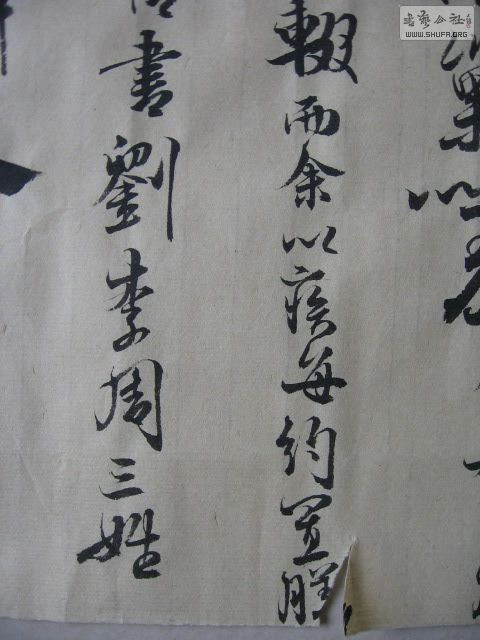 書藝公社
WWW.SHUFA.ORG
果以
輟而余以疾每約置
書劉李周三姓